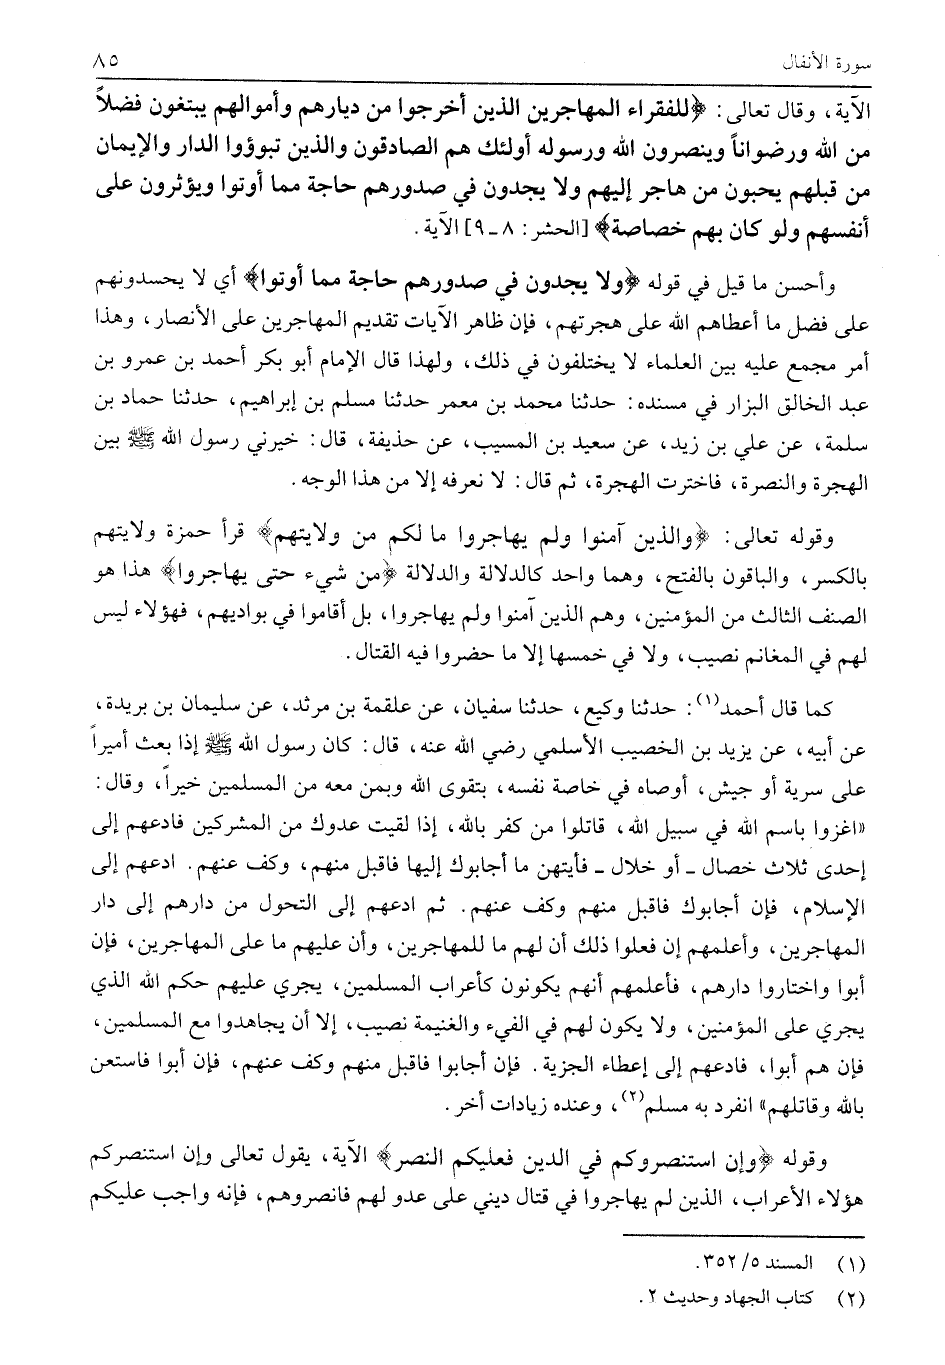 سورة الأنفال ٨٥
الآية، وقال تعالى: ﴿للفقراء المهاجرين الذين أخرجوا من ديارهم وأموالهم يبتغون فضلاً
من الله ورضواناً وينصرون الله ورسوله أولئك هم الصادقون والذين تبوؤوا الدار والإيمان
من قبلهم يحبون من هاجر إليهم ولا يجدون في صدورهم حاجة مما أوتوا ويؤثرون على
أنفسهم ولو كان بهم خصاصة﴾ [الحشر: ٨ ـ ٩] الآية.
وأحسن ما قيل في قوله ﴿ولا يجدون في صدورهم حاجة مما أوتوا﴾ أي لا يحسدونهم
على فضل ما أعطاهم الله على هجرتهم، فإن ظاهر الآيات تقديم المهاجرين على الأنصار، وهذا
أمر مجمع عليه بين العلماء لا يختلفون في ذلك، ولهذا قال الإمام أبو بكر أحمد بن عمرو بن
عبد الخالق البزار في مسنده: حدثنا محمد بن معمر حدثنا مسلم بن إبراهيم، حدثنا حماد بن
سلمة، عن علي بن زيد، عن سعيد بن المسيب، عن حذيفة، قال: خيرني رسول الله ﷺ بين
الهجرة والنصرة، فاخترت الهجرة، ثم قال: لا نعرفه إلا من هذا الوجه.
وقوله تعالى: ﴿والذين آمنوا ولم يهاجروا ما لكم من ولايتهم﴾ قرأ حمزة ولايتهم
بالكسر، والباقون بالفتح، وهما واحد كالدلالة والدلالة ﴿من شيء حتى يهاجروا﴾ هذا هو
الصنف الثالث من المؤمنين، وهم الذين آمنوا ولم يهاجروا، بل أقاموا في بواديهم، فهؤلاء ليس
لهم في المغانم نصيب، ولا في خمسها إلا ما حضروا فيه القتال.
كما قال أحمد(١): حدثنا وكيع، حدثنا سفيان، عن علقمة بن مرثد، عن سليمان بن بريدة،
عن أبيه، عن يزيد بن الخصيب الأسلمي رضي الله عنه، قال: كان رسول الله ﷺ إذا بعث أميراً
على سرية أو جيش، أوصاه في خاصة نفسه، بتقوى الله وبمن معه من المسلمين خيراً، وقال:
«اغزوا باسم الله في سبيل الله، قاتلوا من كفر بالله، إذا لقيت عدوك من المشركين فادعهم إلى
إحدى ثلاث خصال ـ أو خلال ـ فأيتهن ما أجابوك إليها فاقبل منهم، وكف عنهم. ادعهم إلى
الإسلام، فإن أجابوك فاقبل منهم وكف عنهم. ثم ادعهم إلى التحول من دارهم إلى دار
المهاجرين، وأعلمهم إن فعلوا ذلك أن لهم ما للمهاجرين، وأن عليهم ما على المهاجرين، فإن
أبوا واختاروا دارهم، فأعلمهم أنهم يكونون كأعراب المسلمين، يجري عليهم حكم الله الذي
يجري على المؤمنين، ولا يكون لهم في الفيء والغنيمة نصيب، إلا أن يجاهدوا مع المسلمين،
فإن هم أبوا، فادعهم إلى إعطاء الجزية. فإن أجابوا فاقبل منهم وكف عنهم، فإن أبوا فاستعن
بالله وقاتلهم» انفرد به مسلم(٢)، وعنده زيادات أخر.
وقوله ﴿وإن استنصروكم في الدين فعليكم النصر﴾ الآية، يقول تعالى وإن استنصركم
هؤلاء الأعراب، الذين لم يهاجروا في قتال ديني على عدو لهم فانصروهم، فإنه واجب عليكم
(١) المسند ٥/ ٣٥٢.
(٢) كتاب الجهاد وحديث ٢.